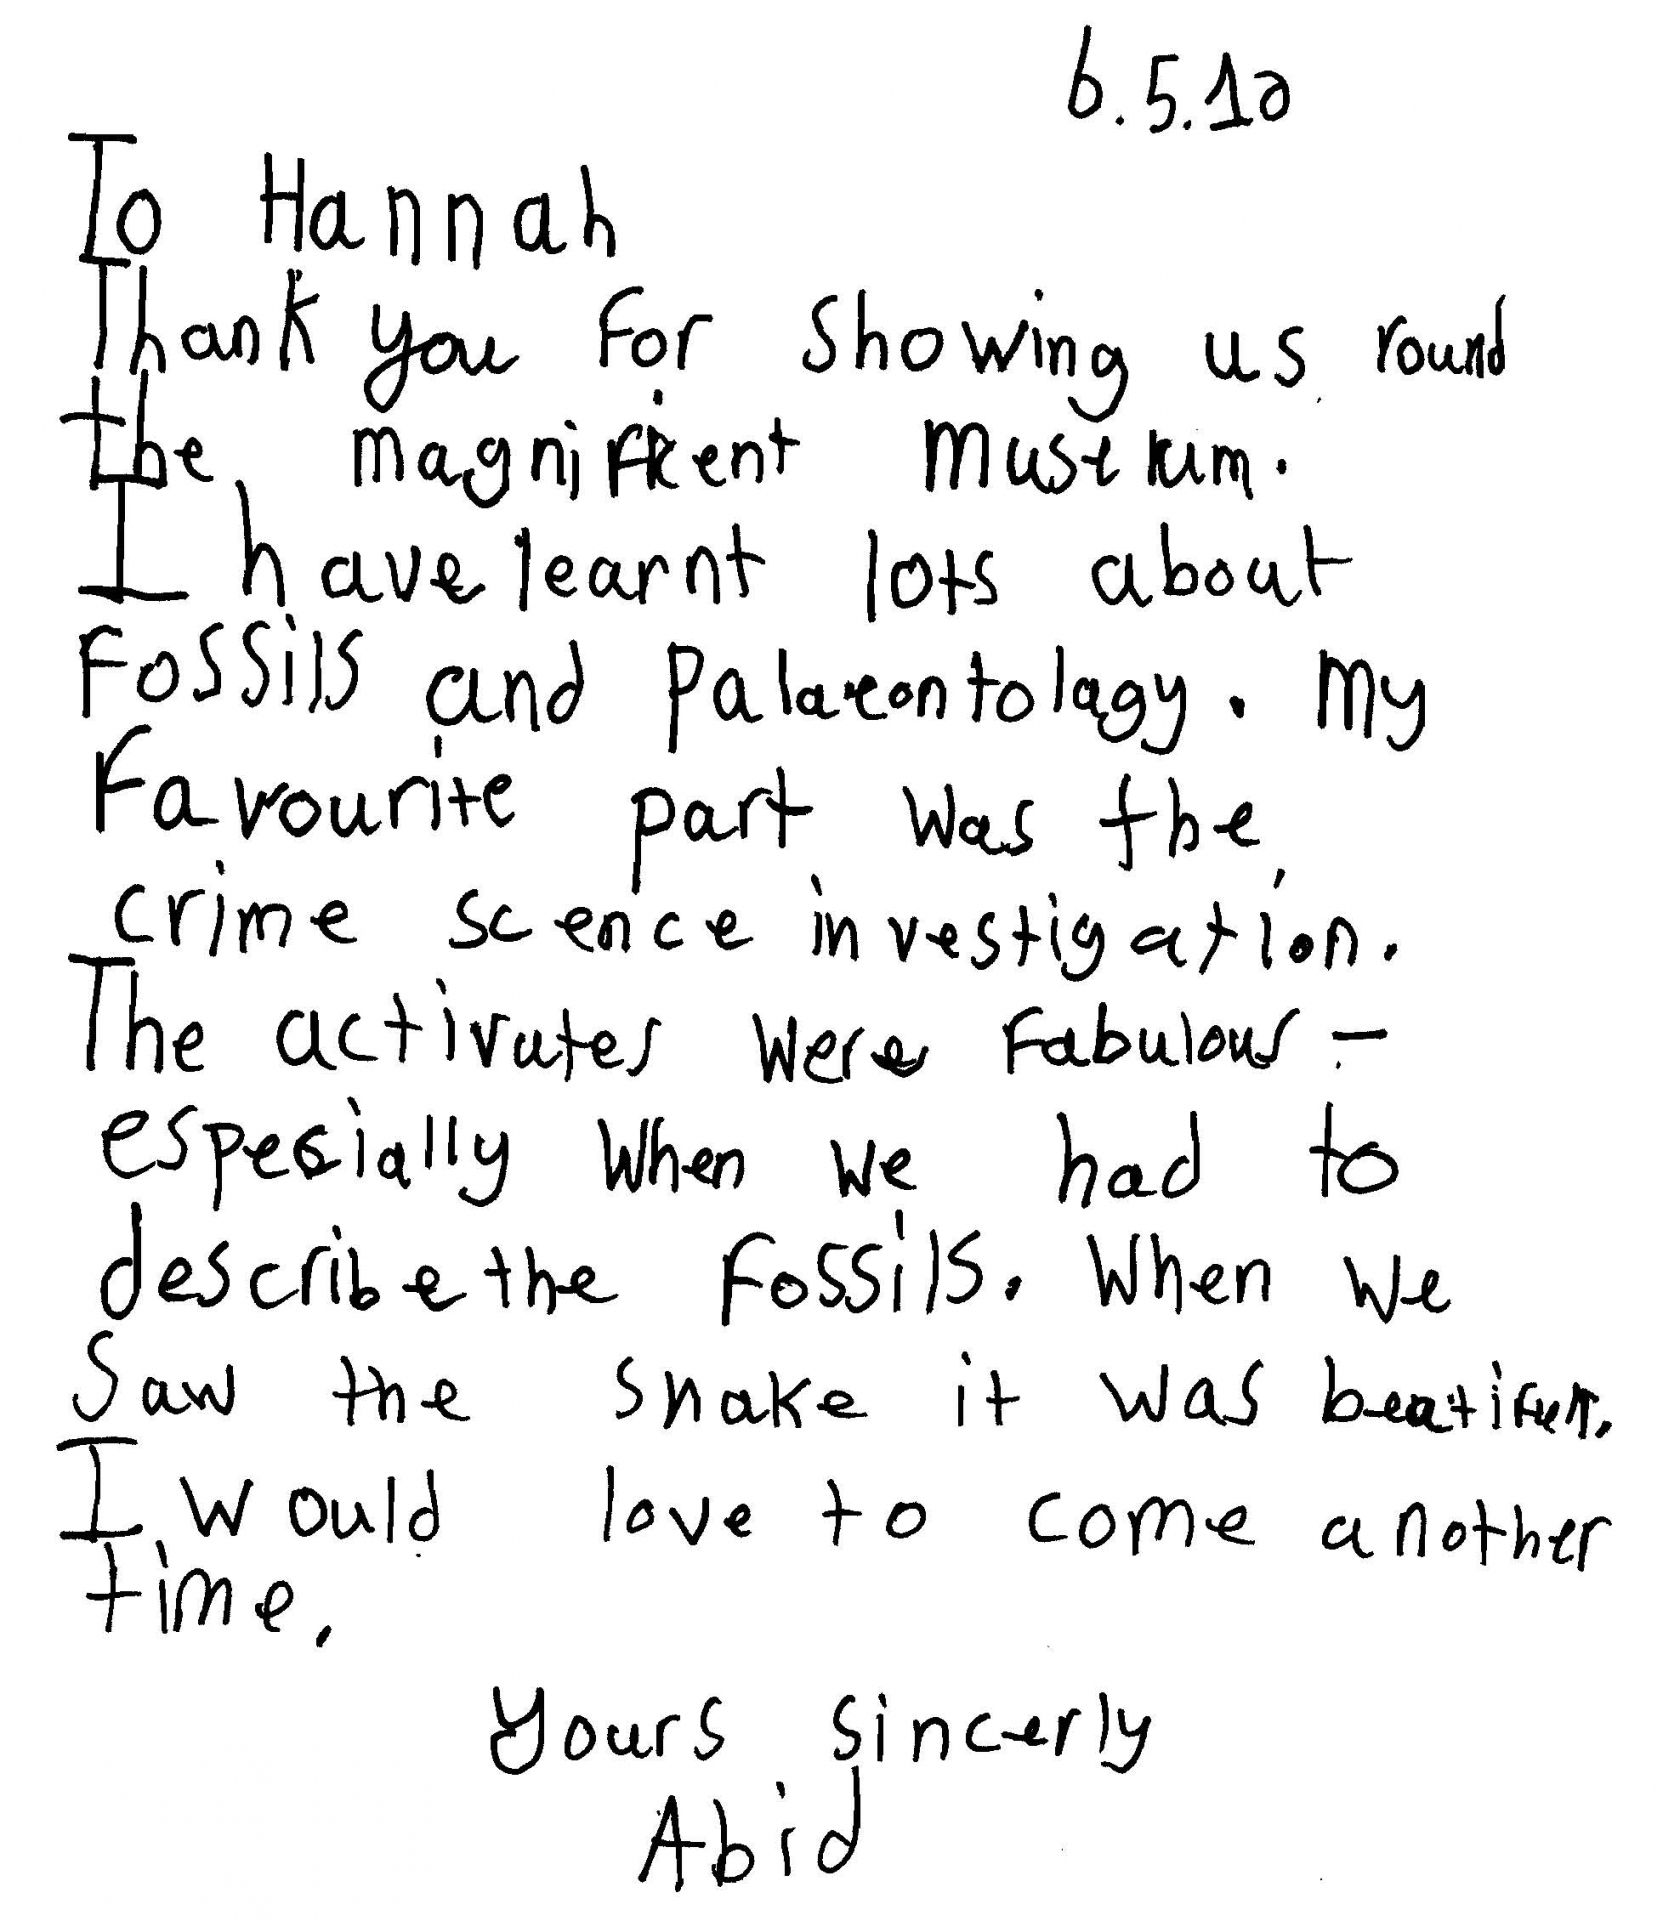 6.5.10
To Hannah
Thank you for showing us round
the magnificent museium.
I have learnt lots about
fossils and Palaeontolagy. My
favourite part was the
crime scence investigation.
The activutes were fabulous -
especially when we had to
describe the fossils. When we
saw the snake it was beatiful.
I would love to come another
time.
Yours sincerly
Abid